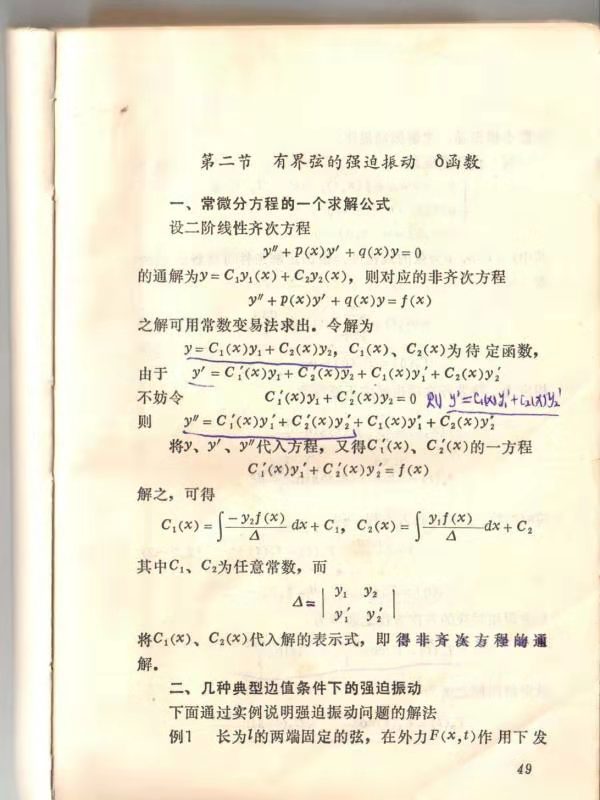 第二节 有界弦的强迫振动 δ函数
一、常微分方程的一个求解公式
设二阶线性齐次方程
y″+p(x)y′+q(x)y=0
的通解为y=C₁y₁(x)+C₂y₂(x)，则对应的非齐次方程
y″+p(x)y′+q(x)y=f(x)
之解可用常数变易法求出。令解为
y=C₁(x)y₁+C₂(x)y₂，C₁(x)、C₂(x)为待定函数，
由于 y′=C₁′(x)y₁+C₂′(x)y₂+C₁(x)y₁′+C₂(x)y₂′
不妨令 C₁′(x)y₁+C₂′(x)y₂=0 则 y′=C₁(x)y₁′+C₂(x)y₂′
则 y″=C₁′(x)y₁′+C₂′(x)y₂′+C₁(x)y₁″+C₂(x)y₂″
将y、y′、y″代入方程，又得C₁′(x)、C₂′(x)的一方程
C₁′(x)y₁′+C₂′(x)y₂′=f(x)
解之，可得
C₁(x)=∫ -y₂f(x)/Δ dx+C₁，C₂(x)=∫ y₁f(x)/Δ dx+C₂
其中C₁、C₂为任意常数，而
Δ=| y₁ y₂ |
| y₁′ y₂′ |
将C₁(x)、C₂(x)代入解的表示式，即得非齐次方程的通
解。
二、几种典型边值条件下的强迫振动
下面通过实例说明强迫振动问题的解法
例1 长为l的两端固定的弦，在外力F(x,t)作用下发
49